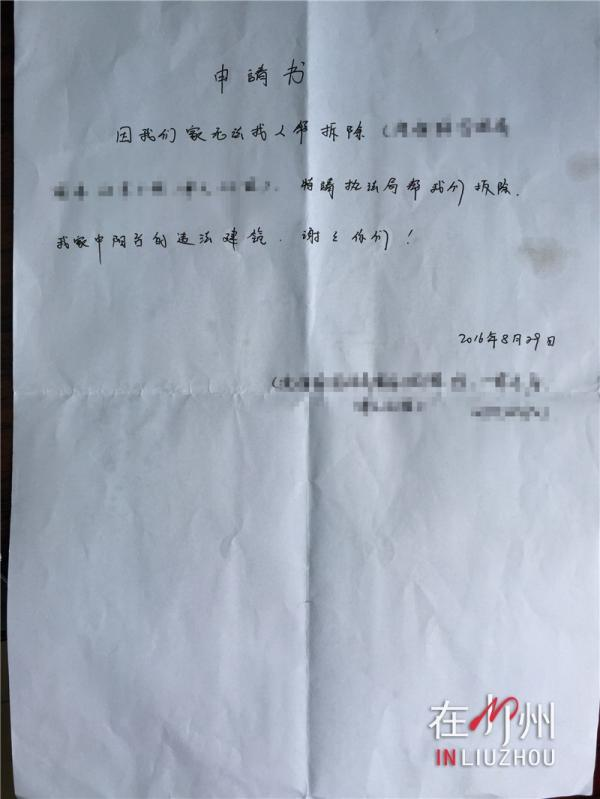 申請书
因我们家无法找人帮拆除
特請执法局帮我们拆除.
我家中阳台的违法建筑.谢谢你们!
2016年8月29日
在柳州
INLIUZHOU